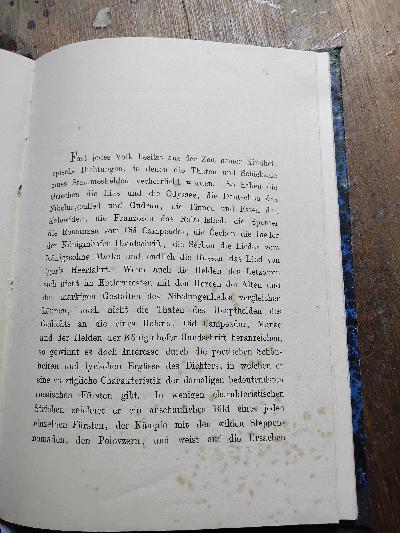 Fast jedes Volk besitzt aus der Zeit seiner Kindheit
epische Dichtungen, in denen die Thaten und Schicksale
eines Stammeshelden verherrlicht werden. So haben die
Griechen die Ilias und die Odyssee, die Deutschen das
Nibelungenlied und Gudrun, die Finnen und Esten den
Kalewiden, die Franzosen das Rolandslied, die Spanier
die Romanzen vom Cid Campeador, die Čechen die Lieder
der Königinhofer Handschrift, die Serben die Lieder vom
Königssohne Marko und endlich die Russen das Lied von
Igor's Heerfahrt. Wenn auch die Helden des Letzteren
sich nicht im Entferntesten mit den Heroen der Alten und
den markigen Gestalten des Nibelungenliedes vergleichen
können, auch nicht die Thaten des Haupthelden des
Gedichts an die eines Roland, Cid Campeador, Marko
und der Helden der Königinhofer Handschrift heranreichen,
so gewinnt es doch Interesse durch die poetischen Schön-
heiten und lyrischen Ergüsse des Dichters, in welchen er
eine vorzügliche Charakteristik der damaligen bedeutendsten
russischen Fürsten gibt. In wenigen charakteristischen
Strichen zeichnet er ein anschauliches Bild eines jeden
einzelnen Fürsten, der Kämpfe mit den wilden Steppen-
nomaden, den Polovzern, und weist auf die Ursachen